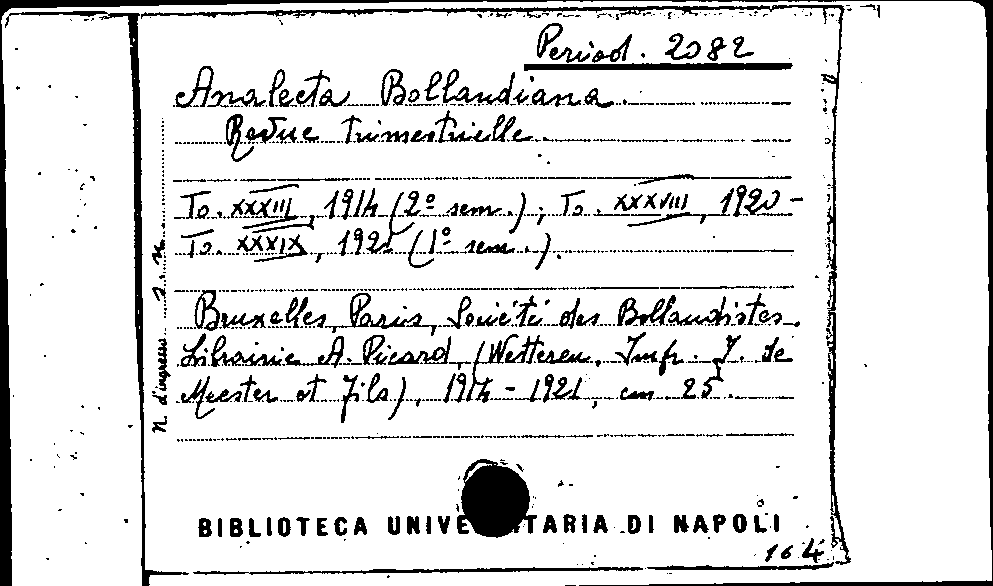 Period. 2082
Analecta Bollandiana.
Revue trimestrielle.
To. XXXIII, 1914 (2º sem.); To. XXXVIII, 1920-
To. XXXIX, 1921 (1º sem.).
Bruxelles, Paris, Société des Bollandistes.
Librairie A. Picard, (Wetteren, Impr. J. de
Meester et Fils), 1914-1921, cm. 25.
N. d'ingresso
BIBLIOTECA UNIVE TARIA DI NAPOLI
164